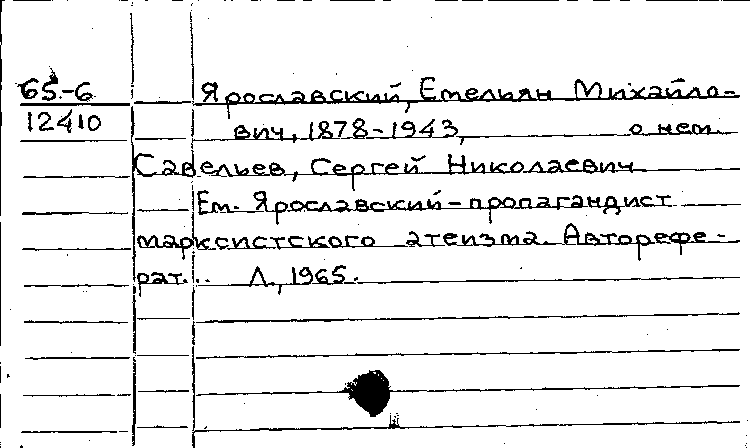 65.-6 Ярославский, Емельян Михайло-
12410 вич, 1878-1943, о нем.
Савельев, Сергей Николаевич
Ем. Ярославский-пропагандист
марксистского атеизма. Авторефе-
рат... Л., 1965.